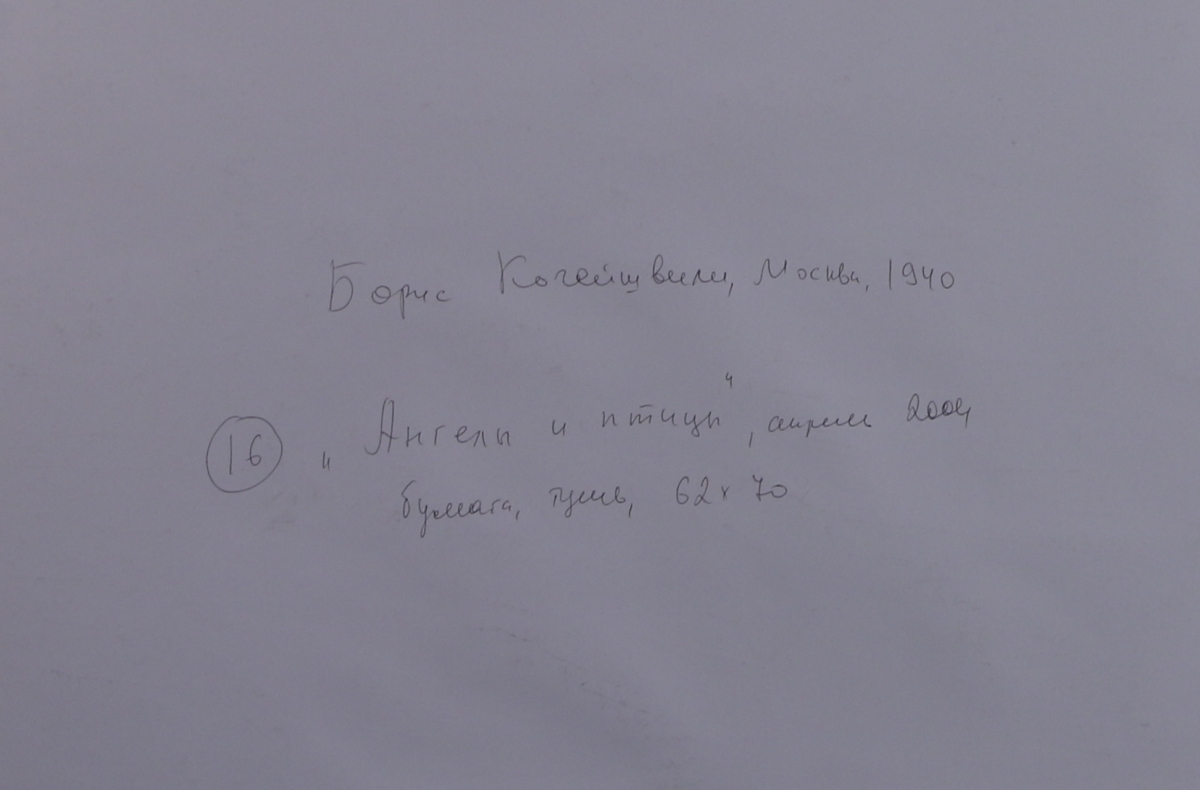 Борис Кочейшвили, Москва, 1940
16 „Ангелы и птицы“, апрель 2004,
бумага, тушь, 62х70